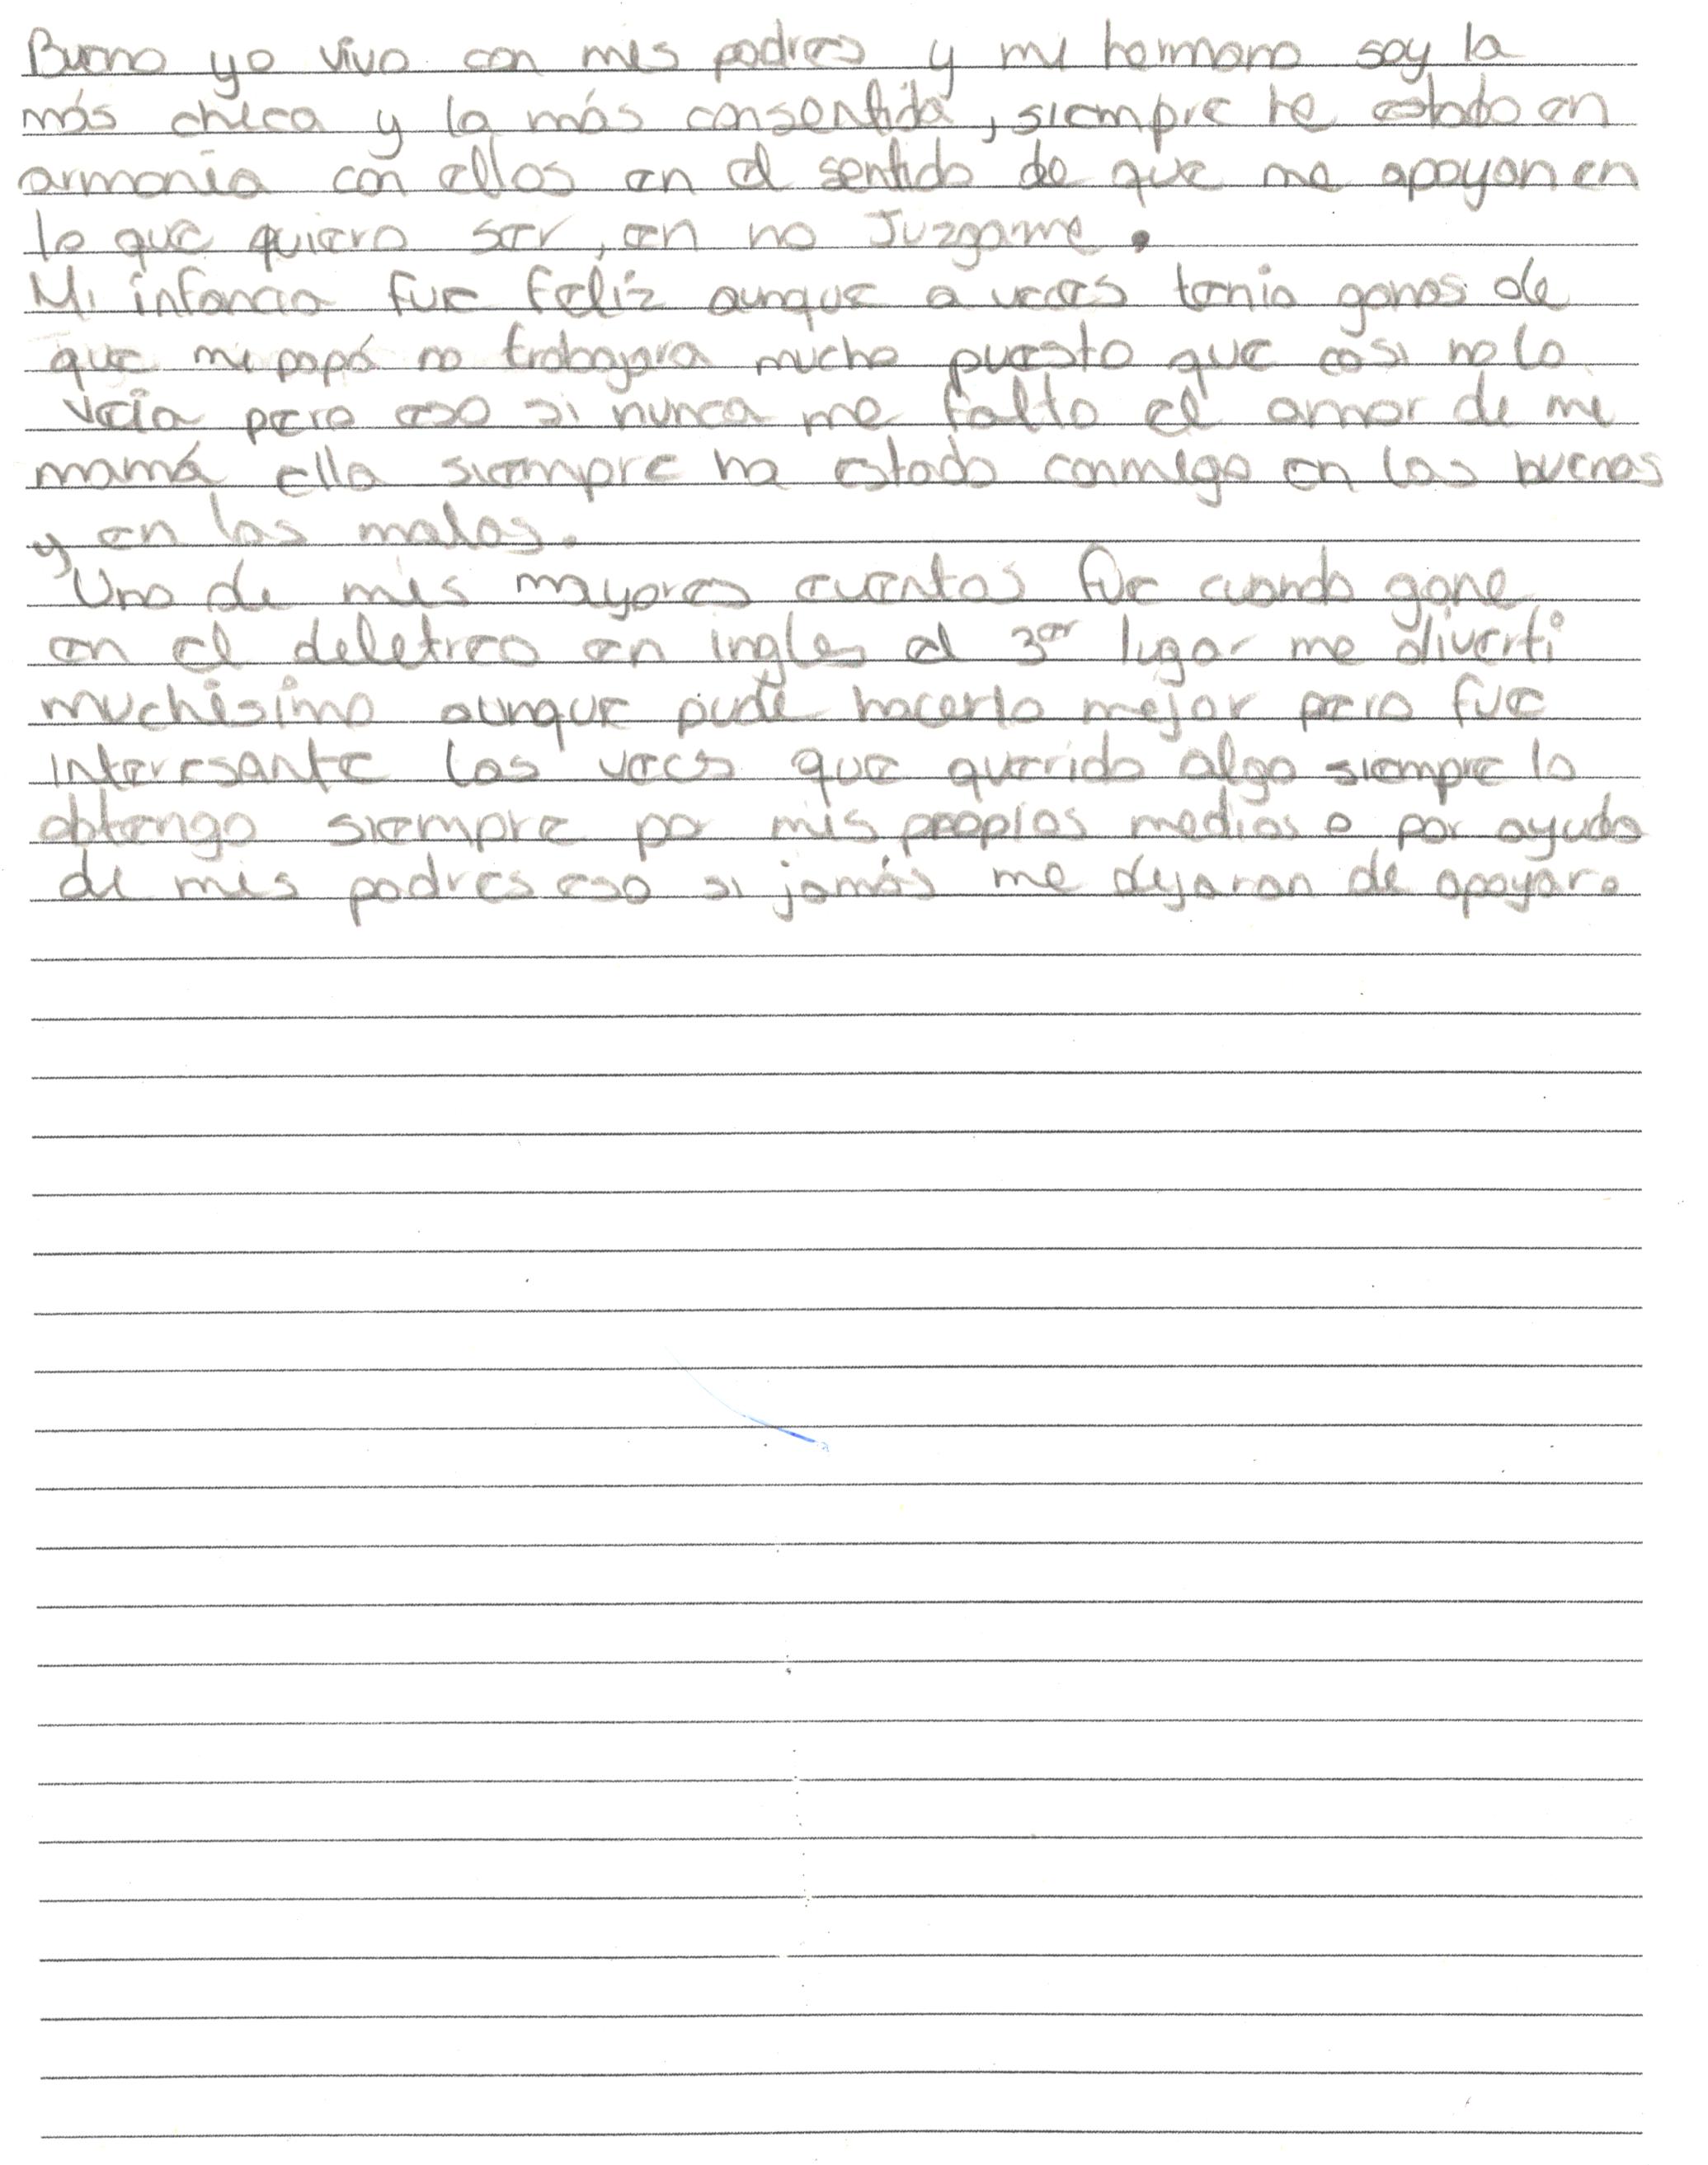 Bueno yo vivo con mis padres y mi hermano soy la
más chica y la más consentida, siempre he estado en
armonía con ellos en el sentido de que me apoyan en
lo que quiero ser, en no Juzgarme.
Mi infancia fue feliz aunque a veces tenia ganas de
que mi papá no trabajara mucho puesto que casi no lo
veía pero eso si nunca me falto el amor de mi
mamá ella siempre ha estado conmigo en las buenas
y en las malas.
Uno de mis mayores eventos fue cuando gane
en el deletreo en ingles el 3er lugar me diverti
muchísimo aunque pude hacerlo mejor pero fue
interesante las veces que querido algo siempre lo
obtengo siempre por mis propios medios o por ayuda
de mis padres eso si jamás me dejaran de apoyar.